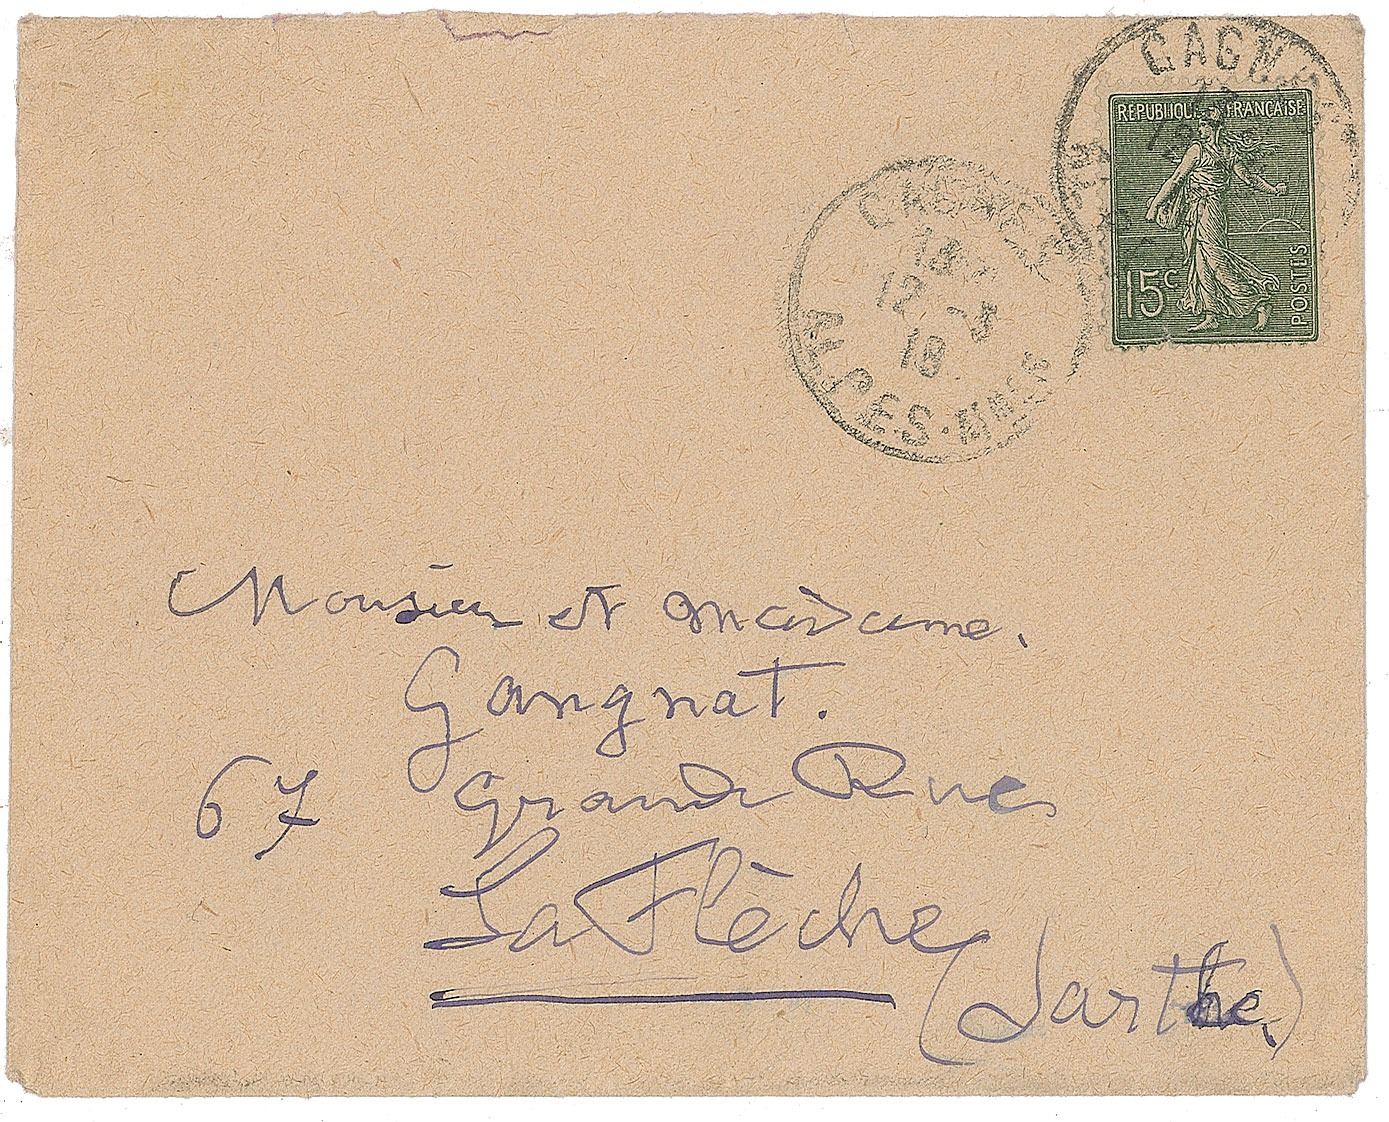 CAGN
REPUBLIQUE FRANÇAISE
15c
POSTES
CAGNES
12 -3
18
ALPES-MMES
Monsieur et Madame.
Gangnat.
67 Grande Rue
La Flèche
(Sarthe)